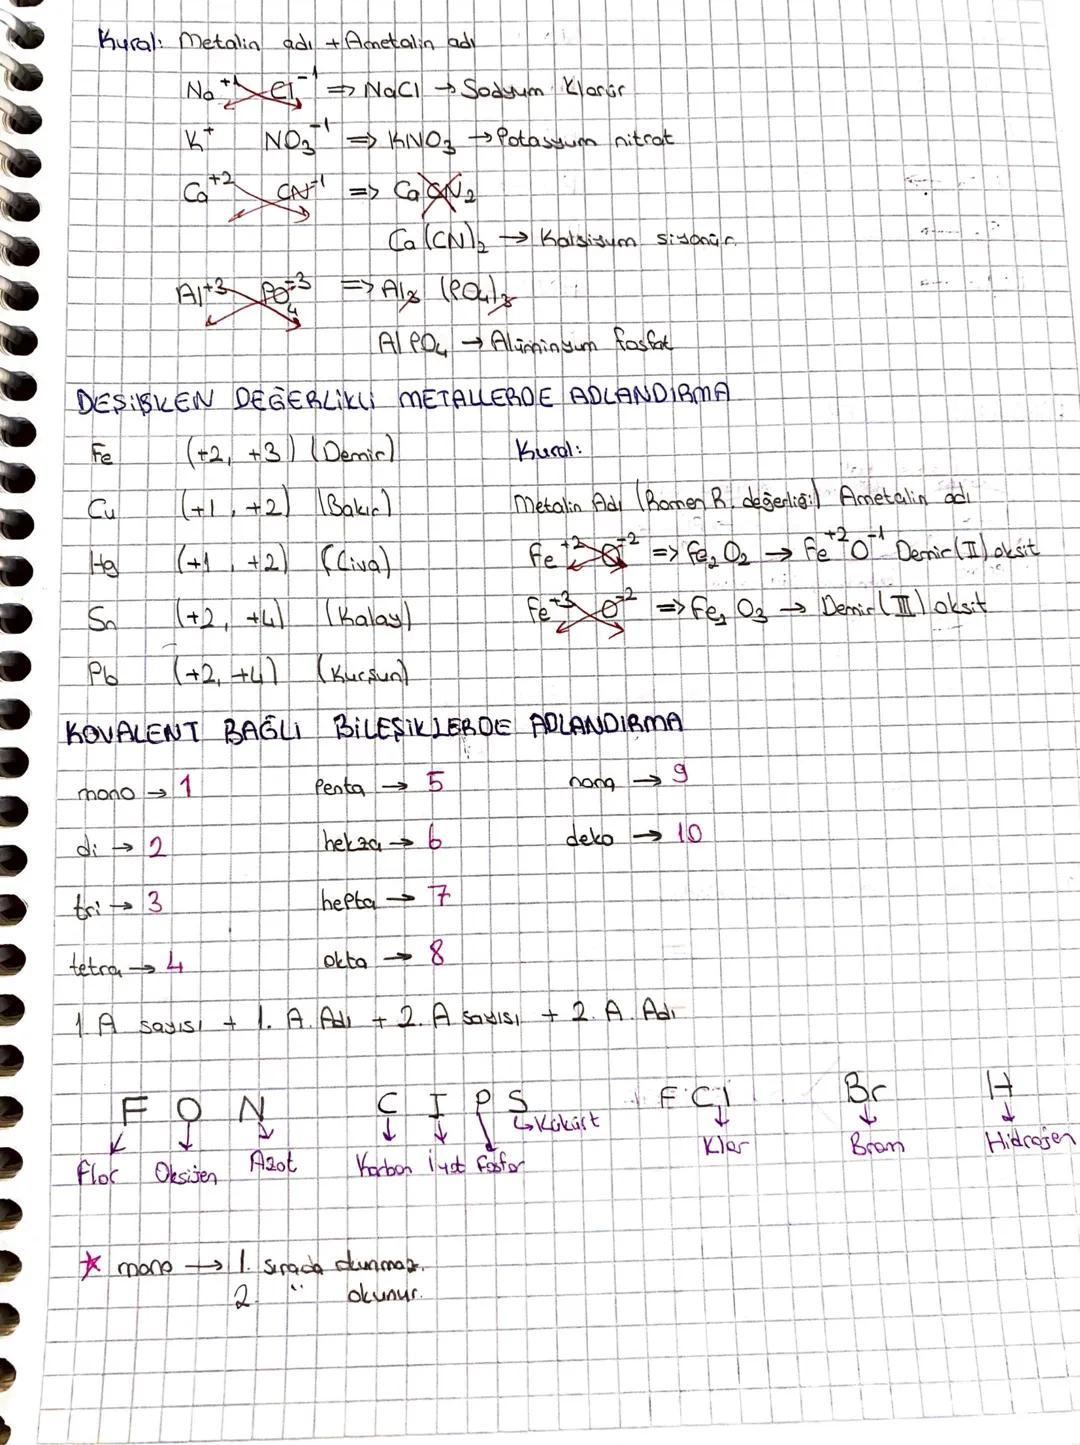 Kural: Metalin adı + Ametalin adı
Na⁺¹ Cl⁻¹ => NaCl → Sodyum Klorür
K⁺ NO₃⁻¹ => KNO₃ → Potasyum nitrat
Ca⁺² CN⁻¹ => CaCN₂
Ca(CN)₂ → Kalsiyum siyanür
Al⁺³ PO₄⁻³ => Al₃ (PO₄)₃
AlPO₄ → Alüminyum fosfat
DEĞİŞKEN DEĞERLİKLİ METALLERDE ADLANDIRMA
Fe (+2, +3) (Demir) Kural:
Cu (+1, +2) (Bakır) Metalin Adı (Romen R. değerliği) Ametalin adı
Hg (+1, +2) (Civa) Fe⁺² O⁻² => Fe₂O₂ → Fe⁺²O⁻¹ Demir(II) oksit
Sn (+2, +4) (Kalay) Fe⁺³ O⁻² => Fe₂O₃ → Demir(III) oksit
Pb (+2, +4) (Kurşun)
KOVALENT BAĞLI BİLEŞİKLERDE ADLANDIRMA
mono → 1 Penta → 5 nona → 9
di → 2 hekza → 6 deko → 10
tri → 3 hepta → 7
tetra → 4 okta → 8
1. A sayısı + 1. A. Adı + 2. A sayısı + 2. A. Adı
F O N C I P S F Cl Br H
Flor Oksijen Azot Karbon İyot Fosfor Kükürt Klor Brom Hidrojen
★ mono → 1. sırada okunmaz.
2. " okunur.